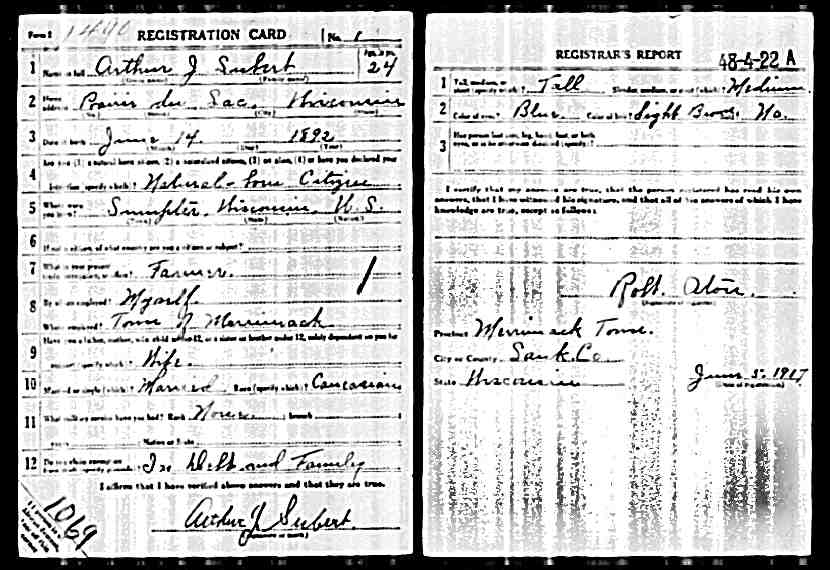 Form 1 1490 REGISTRATION CARD No. 1
1 Name in full Arthur J Seubert Age, in yrs. 24
(Given name) (Family name)
2 Home address Prairie du Sac, Wisconsin
(No.) (Street) (City) (State)
3 Date of birth June 14 1892
(Month) (Day) (Year)
Are you (1) a natural born citizen, (2) a naturalized citizen, (3) an alien, (4) or have you declared your
4 intention (specify which)? Natural-born Citizen
5 Where were you born? Sumpter, Wisconsin, U.S.
(Town) (State) (Nation)
6 If not a citizen, of what country are you a citizen or subject?
7 What is your present trade, occupation, or office? Farmer. 1
8 By whom employed? Myself.
Where employed? Town of Merrimack
Have you a father, mother, wife, child under 12, or a sister or brother under 12, solely dependent on you for
9 support (specify which)? Wife.
10 Married or single (which)? Married Race (specify which)? Caucasian
11 What military service have you had? Rank None branch
years Nation or State
12 Do you claim exemption from draft (specify grounds)? In Debt and Family
I affirm that I have verified above answers and that they are true.
1069
Arthur J Seubert.
(Signature or mark)
REGISTRAR'S REPORT 48-4-22 A
1 Tall, medium, or short (specify which)? Tall Slender, medium, or stout (which)? Medium
2 Color of eyes? Blue Color of hair? Light Brown No.
3 Has person lost arm, leg, hand, foot, or both
eyes, or is he otherwise disabled (specify)?
I certify that my answers are true, that the person registered has read his own
answers, that I have witnessed his signature, and that all of his answers of which I have
knowledge are true, except as follows:
Robt.
(Signature of registrar)
Precinct Merrimack Town.
City or County Sauk Co.
State Wisconsin June 5. 1917
(Date of registration)